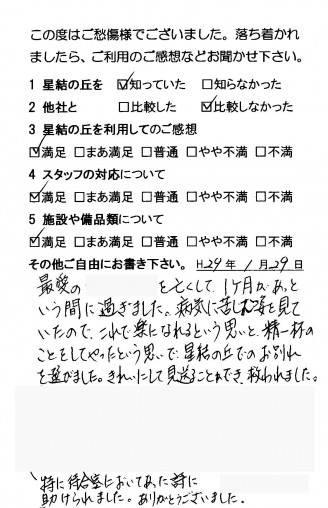 この度はご愁傷様でございました。落ち着かれ
ましたら、ご利用のご感想などお聞かせ下さい。
1 星結の丘を ☑知っていた □知らなかった
2 他社と □比較した ☑比較しなかった
3 星結の丘を利用してのご感想
☑満足 □まあ満足 □普通 □やや不満 □不満
4 スタッフの対応について
☑満足 □まあ満足 □普通 □やや不満 □不満
5 施設や備品類について
☑満足 □まあ満足 □普通 □やや不満 □不満
その他ご自由にお書き下さい。 H29年 1月29日
最愛の を亡くして、1ヶ月があっと
いう間に過ぎました。病気に苦しむ姿を見て
いたので、これで楽になれるという思いと、精一杯の
ことをしてやったという思いで、星結の丘でのお別れ
を選びました。きれいにして見送ることができ、救われました。
特に待合室においてあった詩に
助けられました。ありがとうございました。